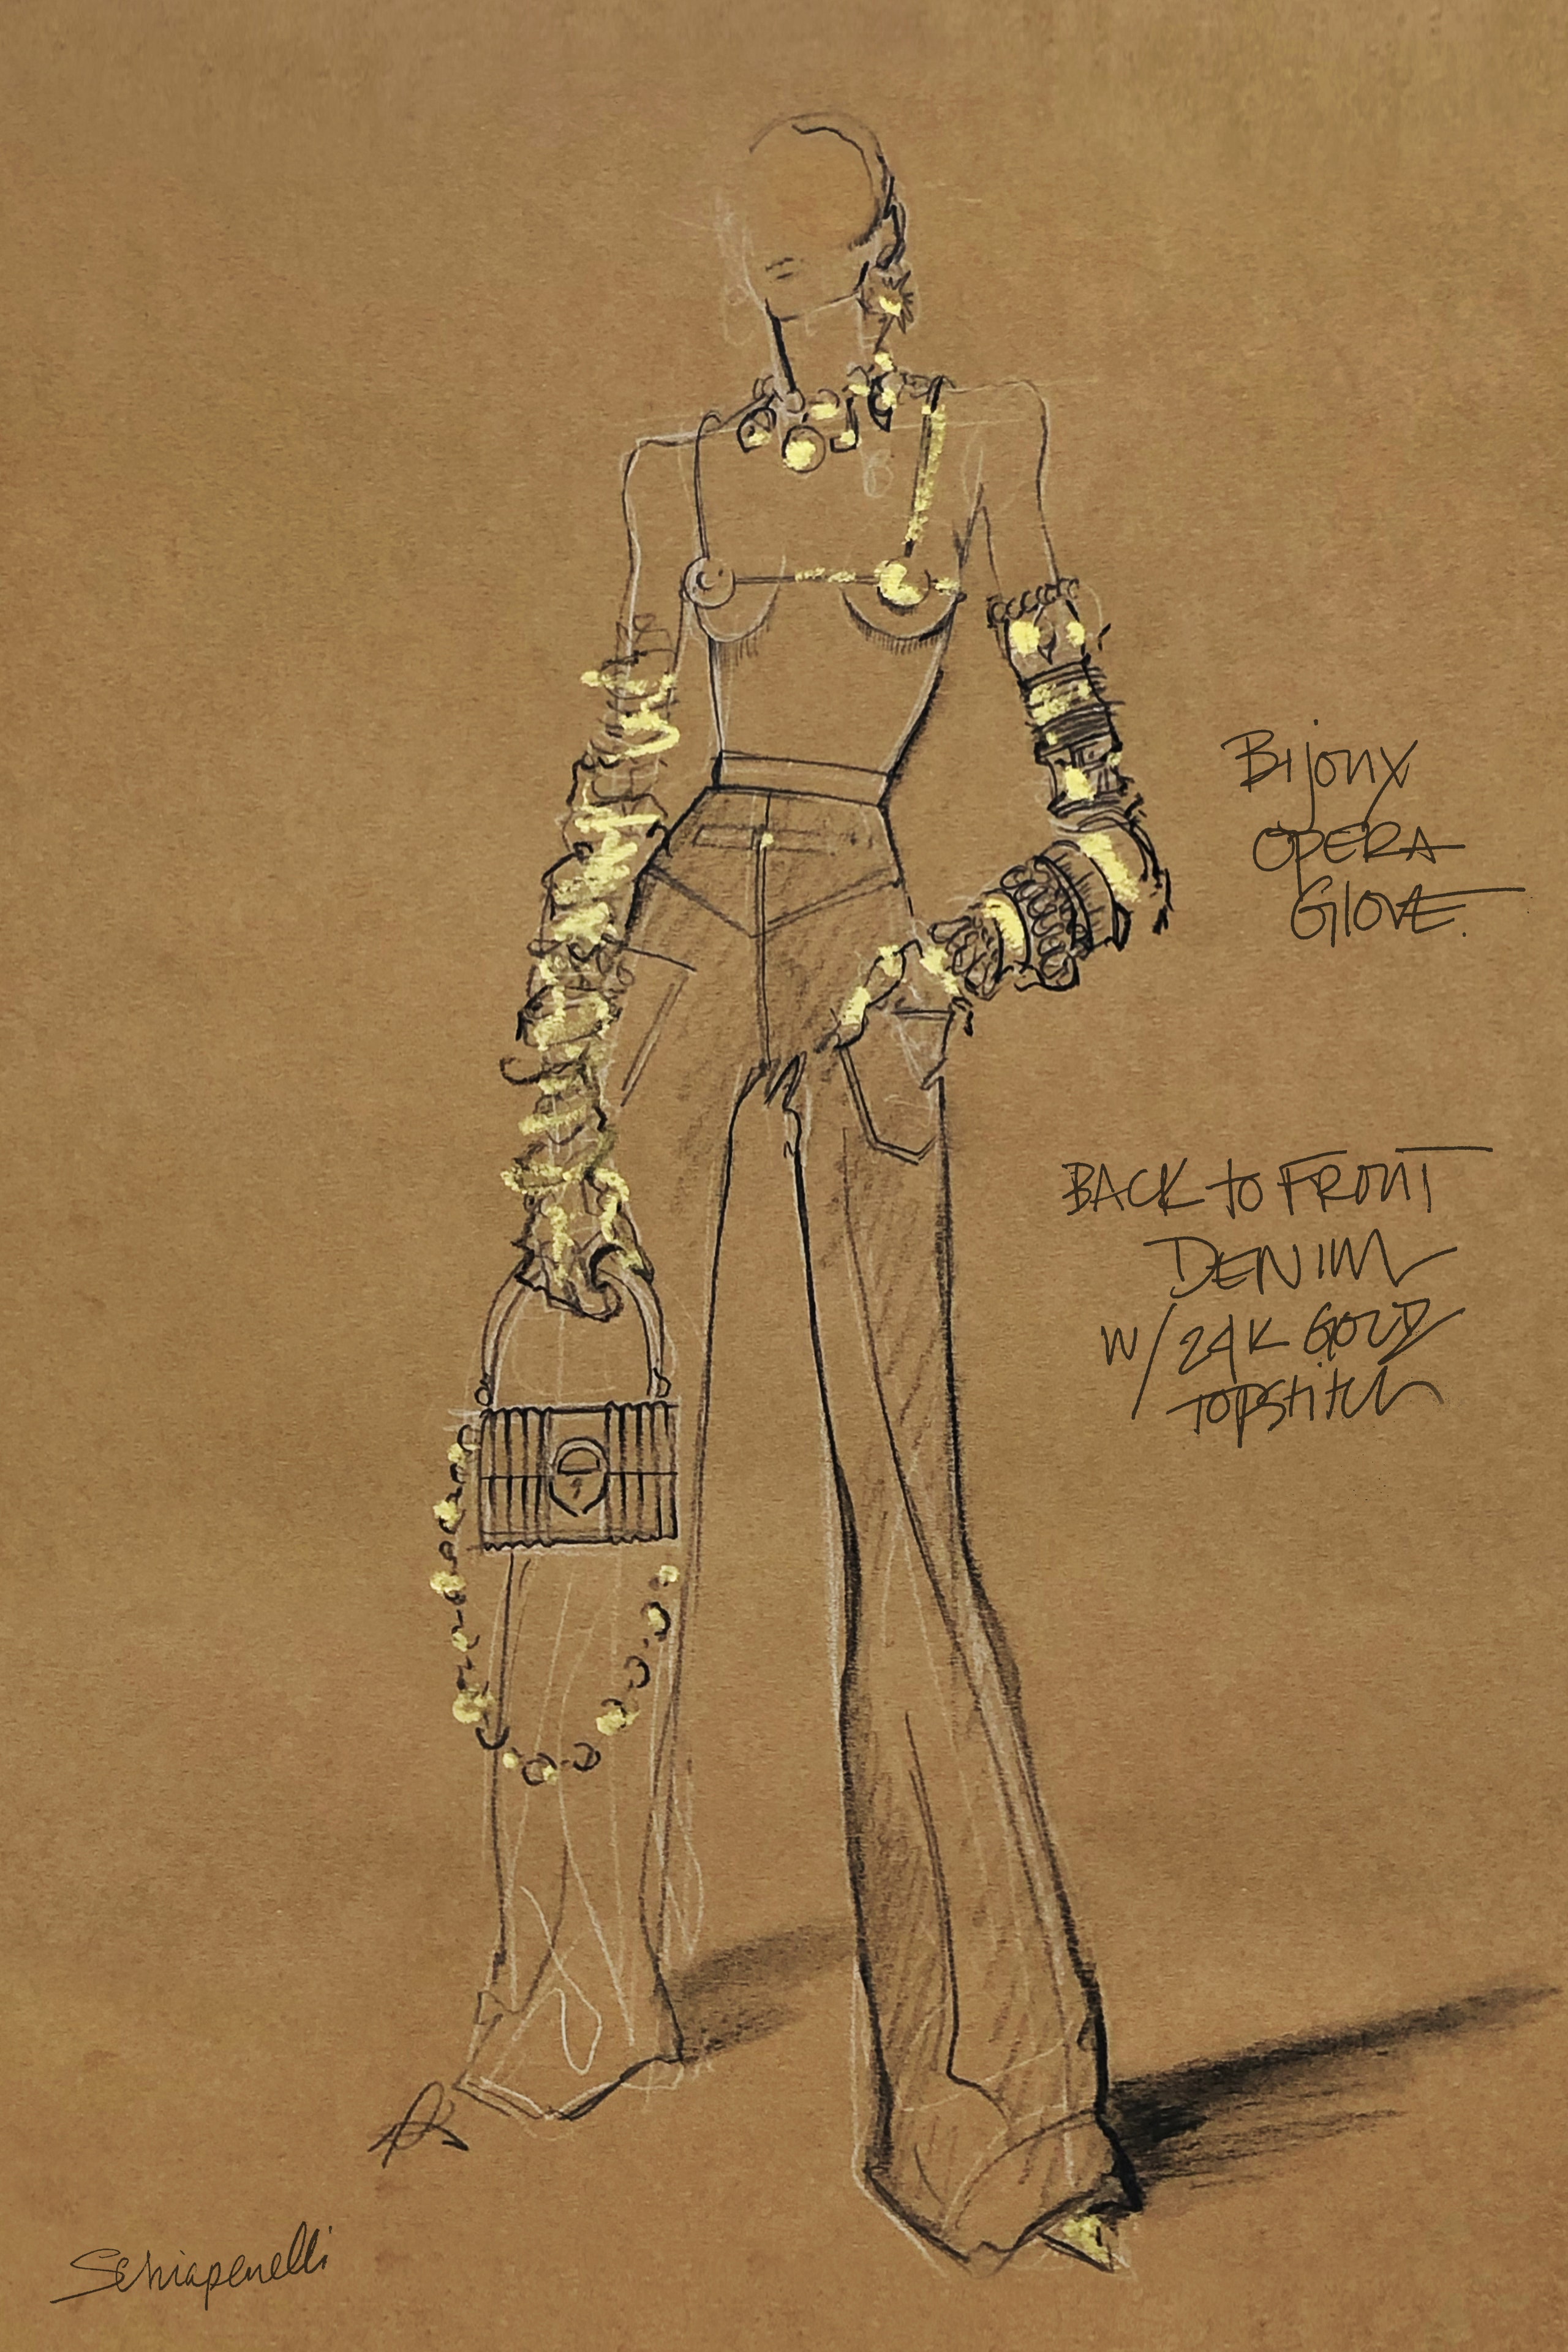 Bijoux
OPERA
GlOVE.
BACK to FRONT
DENIM
W/24K GOLD
TOPStitch
Schiaparelli